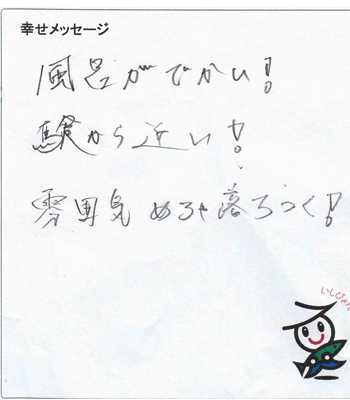 幸せメッセージ
風呂がでかい!
駅から近い!
雰囲気めちゃ落ちつく!